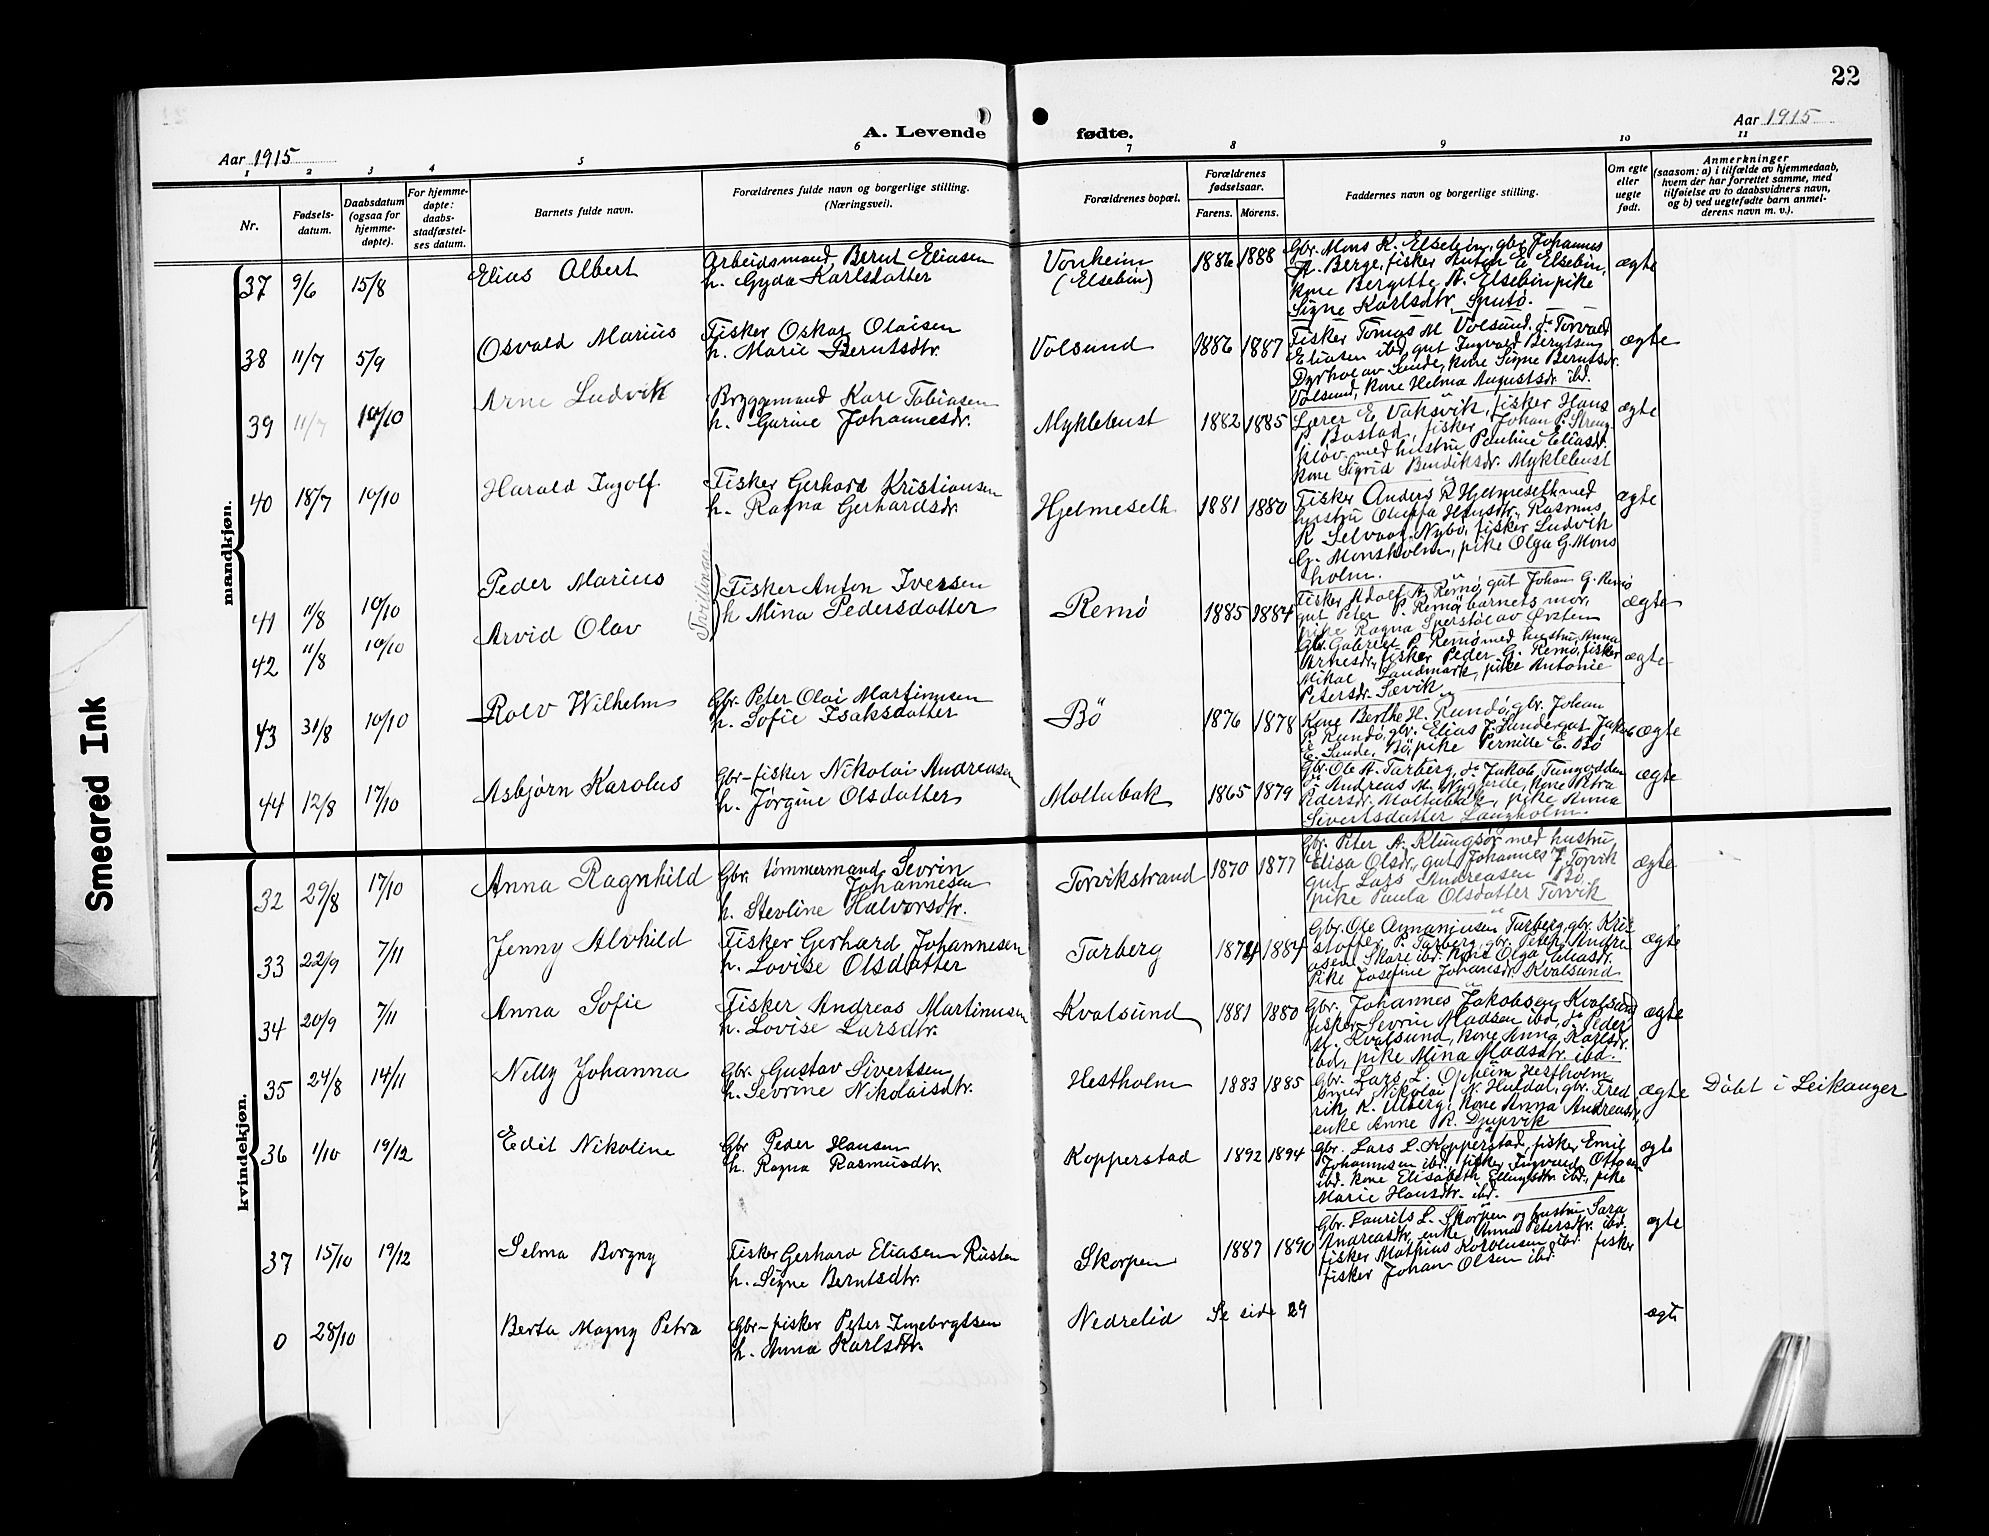 22
A. Levende fødte.
Aar 1915
Aar 1915
1 2 3 4 5 6 7 8 9 10 11
Nr.
Fødsels-
datum.
Daabsdatum
(ogsaa for
hjemme-
døpte).
For hjemme-
døpte:
daabs-
stadfæstel-
ses datum.
Barnets fulde navn.
Forældrenes fulde navn og borgerlige stilling.
(Næringsvei).
Forældrenes bopæl.
Forældrenes
fødselsaar.
Farens. Morens.
Faddernes navn og borgerlige stilling.
Om egte
eller
uegte
født.
Anmerkninger
(saasom: a) i tilfælde av hjemmedaab,
hvem der har forrettet samme, med
tilføielse av to daabsvidners navn,
og b) ved uegtefødte barn anmel-
derens navn m. v.).
mandkjøn.
37 9/6 15/8 Elias Albert
Arbeidsmand Bernt Eliasen
h. Gyda Karlsdatter
Vonheim
(Elsebøn)
1886 1888
Gbr. Mons K. Elsebøn, gbr Johannes
A. Berge, fisker Anton E. Elsebøn,
kone Bergitte A. Elsebøn, pike
Signe Karlsdtr.
ægte
38 11/7 5/9 Osvald Marius
Fisker Oskar Olaisen
h. Marie Berntsdtr.
Volsund
1886 1887
Fisker Tomas M. Volsund, do Torvald
Eliasen ibd, gut Ingvald Berntsen
kone Signe Berntsdr.
Volsund, kone Helma Augustsdr ibd.
ægte
39 11/7 10/10 Arne Ludvik
Bryggemand Karl Tobiasen
h. Gurine Johannesdr.
Myklebust
1882 1885
Lærer E. Vaksvik, fisker Hans
P. Bostad, fisker Johan P.
med hustru Pauline Eliasdr.
kone Sigrid Bendiksdr. Myklebust
ægte
40 18/7 10/10 Harald Ingolf.
Fisker Gerhard Kristiansen
h. Ragna Gerhardsdr.
Hjelmeseth
1881 1880
Fisker Anders R. Hjelmeseth med
hustru Hansdtr. Rasmus
R. Selvaag, Nybø, fisker Ludvik
G. Monsholm, pike Olga G. Mons
holm.
ægte
Tvillinger
41 11/8 10/10 Peder Marius
Fisker Anton Iversen
h Mina Pedersdatter
Remø
1885 1884
Fisker Adolf A. Remø, gut Johan G. Remø
gut Peter P. Remø, barnets mor,
pike Ragna
ægte
42 11/8 10/10 Arvid Olav
Gbr. Gabriel P. Remø med hustru Anna
Arnesdr., fisker Peder G. Remø, fisker
Mikal Landmark, pike Antonie
Petersdr. Sævik
ægte
43 31/8 10/10 Rolv Wilhelm
Gbr. Peter Olai Martinusen
h. Sofie Isaksdatter
Bö
1876 1878
Kone Berthe H. Rundö, gbr. Johan
P. Rundö, gbr. Elias J. Sunde, gut Jakob
E. Sunde, Bö, pike Pernille E. Bö
ægte
44 12/8 17/10 Asbjørn Karolus
Gbr-fisker Nikolai Andreasen
h. Jørgine Olsdatter
Moltubak
1865 1879
Gbr. Ole A. Tarberg, do Jakob
do Andreas M. kone Petra
Pedersdr. Moltubak, pike Anna
Sivertsdatter Langholm.
ægte
kvindekjøn.
32 29/8 17/10 Anna Ragnhild
Gbr. tømmermand Sevrin
Johannesen
h. Stevline Halvorsdtr.
Torvikstrand
1870 1877
Gbr. Peter A. Klungsør med hustru
Elisa Olsdr., gut Johannes J. Torvik
gut Lars Andreasen Bö
pike Paula Olsdatter Torvik
ægte
33 22/9 7/11 Jenny Alvhild
Fisker Gerhard Johannesen
h. Lovise Olsdatter
Tarberg
1874 1884
Gbr. Ole Tarberg, gbr. Kri
stoffer P. Tarberg, gbr. Peter Andre
asen Skare ibd. kone Olga Eliasdr.
Pike Josefine Johansdr. Kvalsund
ægte
34 20/9 7/11 Anna Sofie
Fisker Andreas Martinusen
h. Lovise Larsdtr.
Kvalsund
1881 1880
Gbr. Johannes Jakobsen Kvalsund
fisker Sevrin Madsen ibd, do Peder
M. Kvalsund, kone Anna Karlsdr.
ibd, pike Mina Madsdtr. ibd.
ægte
35 24/8 14/11 Nelly Johanna
Gbr. Gustav Sivertsen
h. Sevrine Nikolaisdtr.
Hestholm
1883 1885
Gbr. Lars L. Opheim Hestholm
Nikolai N. Huldal, gbr. Fred
rik K. Ulberg, kone Anna Andreasdr,
enke Anne R. Djupvik
ægte
Döbt i Leikanger
36 1/10 19/12 Edit Nikoline
Gbr Peder Hansen
h. Ragna Rasmusdtr.
Kopperstad
1892 1894
Gbr. Lars L. Kopperstad, fisker Emil
Johannesen ibd., fisker Ingvald Ottosen
ibd. kone Elisabeth Ellingsdtr ibd., pike
Marie Hansdtr. ibd.
ægte
37 15/10 19/12 Selma Borgny
Fisker Gerhard Eliasen Rusten
h. Signe Berntsdtr.
Skorpen
1887 1890
Gbr. Laurits L. Skorpen og hustru Sara
Andreasdtr, enke Anna Petersdtr. ibd.
fisker Mathias Karolusen ibd. fisker
fisker Johan Olsen ibd.
ægte
0 28/10 Berta Magny Petra
Gbr-fisker Peter Ingebrigtsen
h. Anna Karlsdtr.
Nedrelid
Se side 29
ægte
Smeared Ink